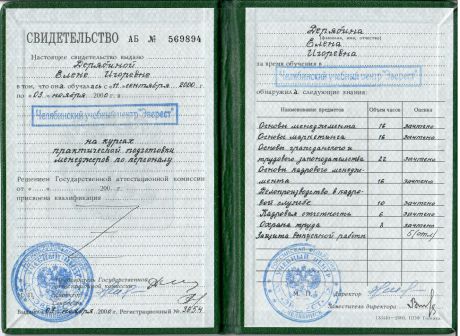 СВИДЕТЕЛЬСТВО АБ № 569894
Настоящее свидетельство выдано
Дерябиной
Елене Игоревне
в том, что она обучалась с «11» сентября 2000 г.
по «03» ноября 2000 г. в
Челябинский учебный центр "Эверест"
на курсах
практической подготовки
менеджеров по персоналу
Решением Государственной аттестационной комиссии
от «...» 200 г.
присвоена квалификация
Председатель Государственной
аттестационной комиссии
Секретарь
Выдано «03» ноября 2000 г. Регистрационный №
Дерябина
Елена
(фамилия, имя, отчество)
Игоревна
за время обучения в
Челябинский учебный центр "Эверест"
обнаружила следующие знания:
Наименование предметов Объем часов Оценка
Основы менеджмента 16 зачтено
Основы маркетинга 16 зачтено
Основы гражданского и
трудового законодательства 22 зачтено
Основы кадрового менедж-
мента 16 зачтено
Делопроизводство в кадро-
вой службе 10 зачтено
Кадровая отчетность 6 зачтено
Охрана труда 8 зачтено
Защита выпускной работы 5/отл/
М. П.
Директор
Заместитель директора